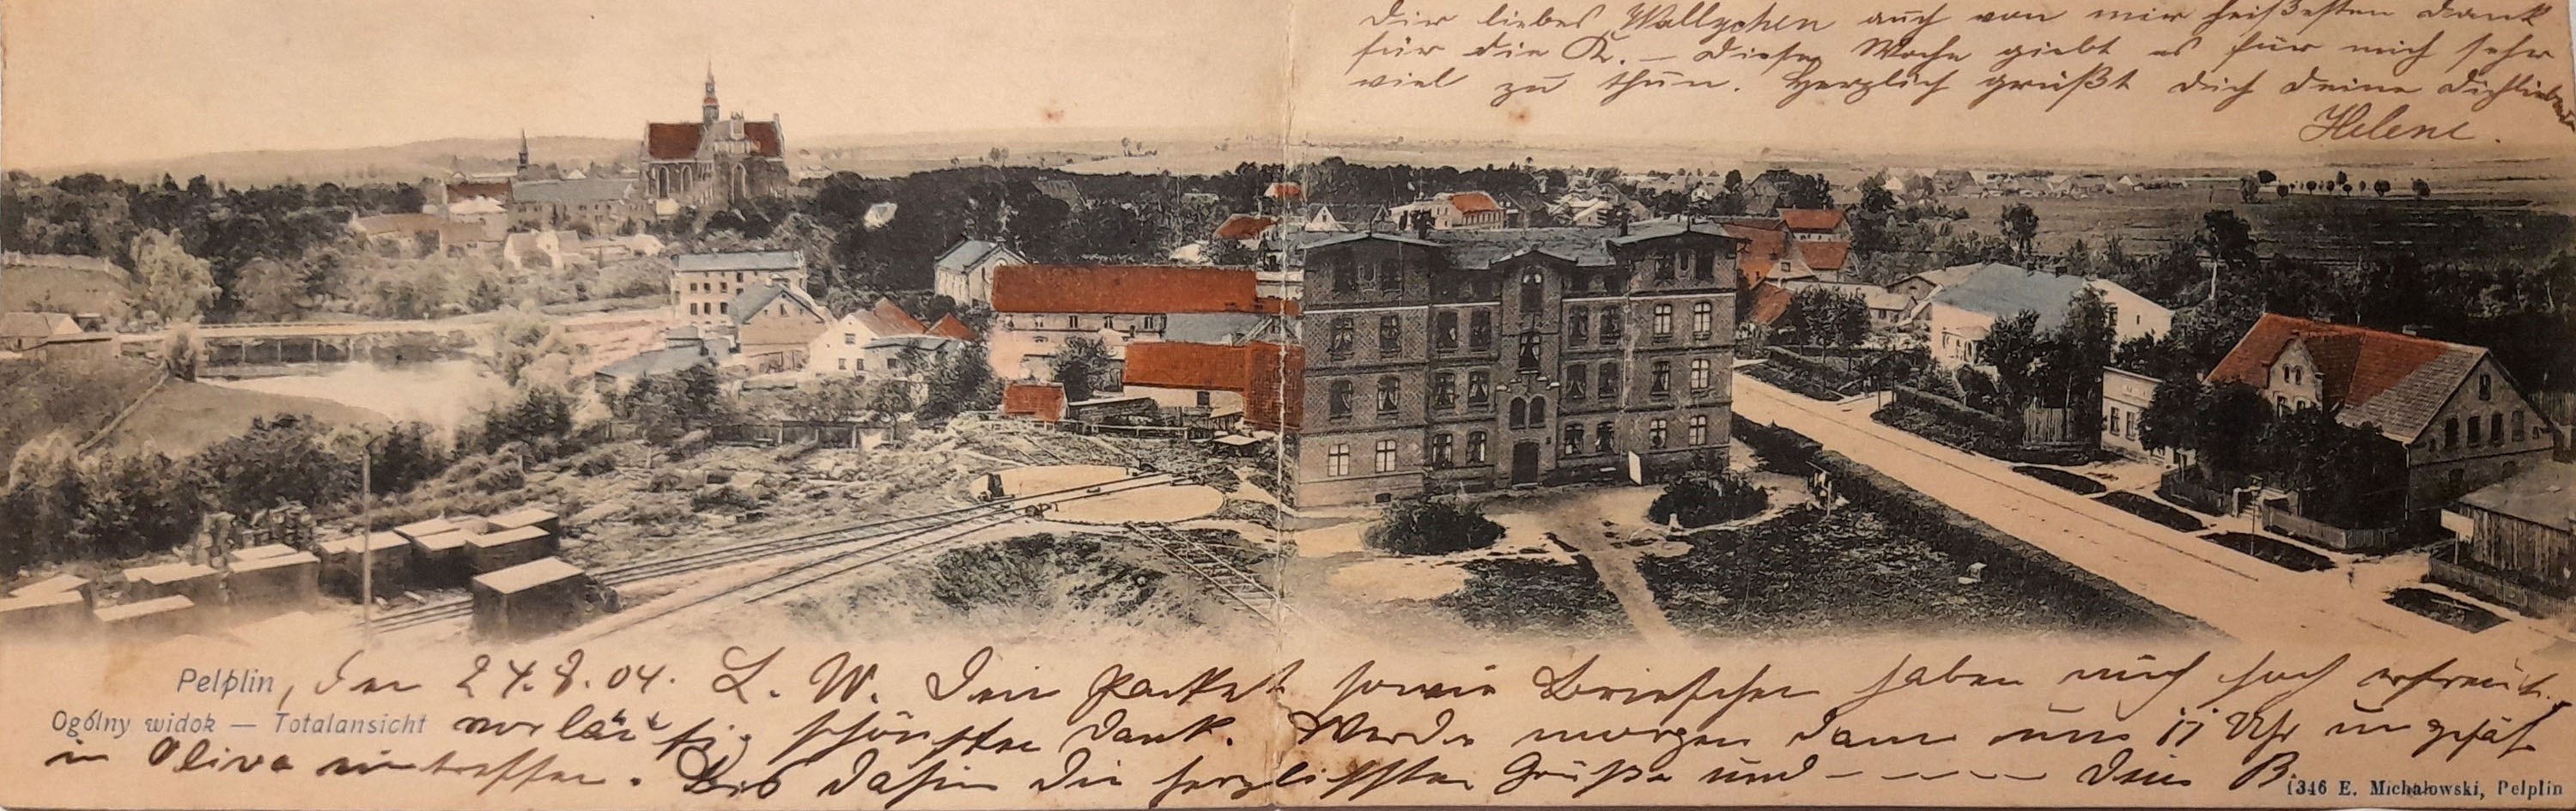 Dir liebes Wallychen auch von mir heißesten Dank
für die K. – Diese Woche giebt es für mich sehr
viel zu thun. Herzlich grüßt Dich Deine Dichliebende
Helene.
Pelplin, den 24.8.04. L. W. Dein Packet sowie Briefchen haben mich hoch erfreut.
Ogólny widok — Totalansicht
vorläufig schönsten Dank. Werde morgen dann um 11 Uhr ungefäh
in Oliva eintreffen. Bis dahin die herzlichsten Grüße und – – – – – Dein B.
1346 E. Michałowski, Pelplin